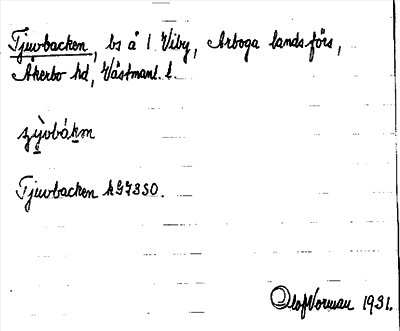 Tjuvbacken, bs å 1 Viby, Arboga landsförs,
Åkerbo hd, Västmanl. l.
Tjuvbacken
Olof Vorman 1931.